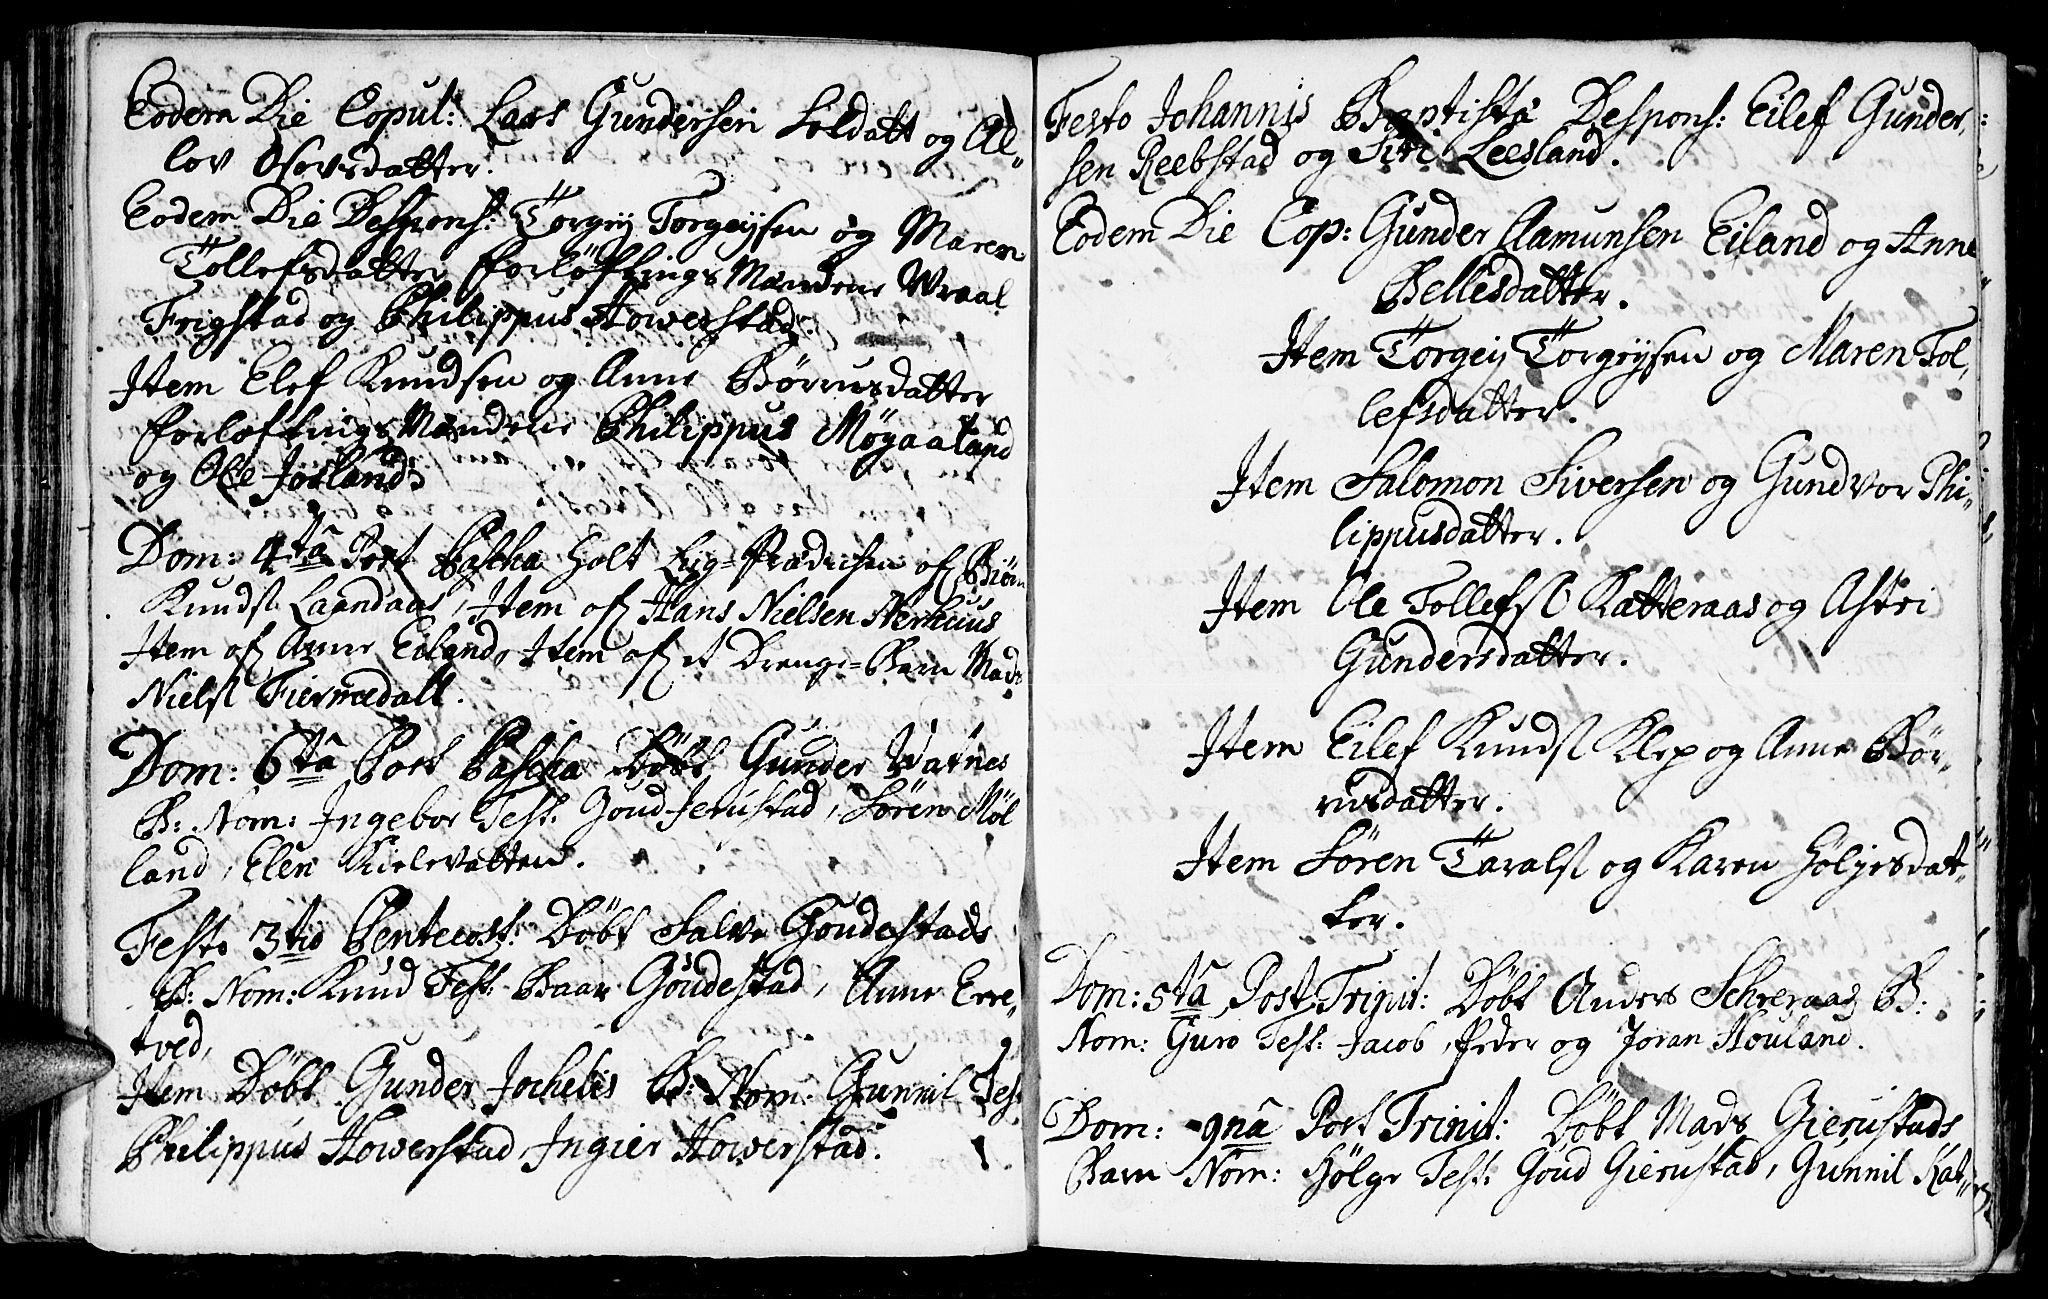 Eodem Die Copul: Lars Gundersen Soldatt og Al„
lov Osovsdatter.
Eodem Die Despons: Torgeij Torgeijsen og Maren
Tollefsdatter Forløfnings Mændene Wraal
Frigstad og Philippus Howerstad.
Item Elef Knudsen og Anne Børrusdatter
Forlofnings Mændene Philippus Møgaaland
og Ole Josland.
Dom: 4ta Post Pascha holt Liig-Prædicken of Biørn
Knuds. Laandaas, Item of Hans Nielsen Nerhuus
Item of Anne Eiland, Item of et Drenge-Barn Mads
Niels. Fiermedall.
Dom: 6ta Post Pascha Döbt Gunder Watnes
B: Nom: Ingebor Test: Goud Jerustad, Sören Möl
land, Elen Kielevatten.
Festo 3tio Pentecost: Döbt Salve Goudestads
B: Nom: Knud Test: Baar Goudestad, Anne Erre„
tved,
Item Döbt Gunder Jochelis B: Nom: Gunnil Test
Philippus Howerstad Ingier Howerstad.
Festo Johannis Baptista Despons: Eilef Gunder„
sen Reebstad og Siri Leesland.
Eodem Die Cop: Gunder Aamunsen Eiland og Anne
Bellesdatter.
Item Torgeij Torgeijsen og Maren Tol„
lefsdatter.
Item Salomon Siversen og Gundvor Phi„
lippusdatter.
Item Ole Tollefs. Katteraas og Astri
Gundersdatter.
Item Eilef Knuds. Klep og Anne Bör„
rusdatter.
Item Sören Tarals. og Karen Höljesdat„
ter.
Dom: 5ta Post Trinit: Döbt Anders Schreraas B:
Nom: Guro Test: Jacob, Peder og Joran Houland.
Dom: 9na Post Trinit: Döbt Mads Gierustads
Barn Nom: Hölge Test: Goud Gierustad, Gunnil Kat„